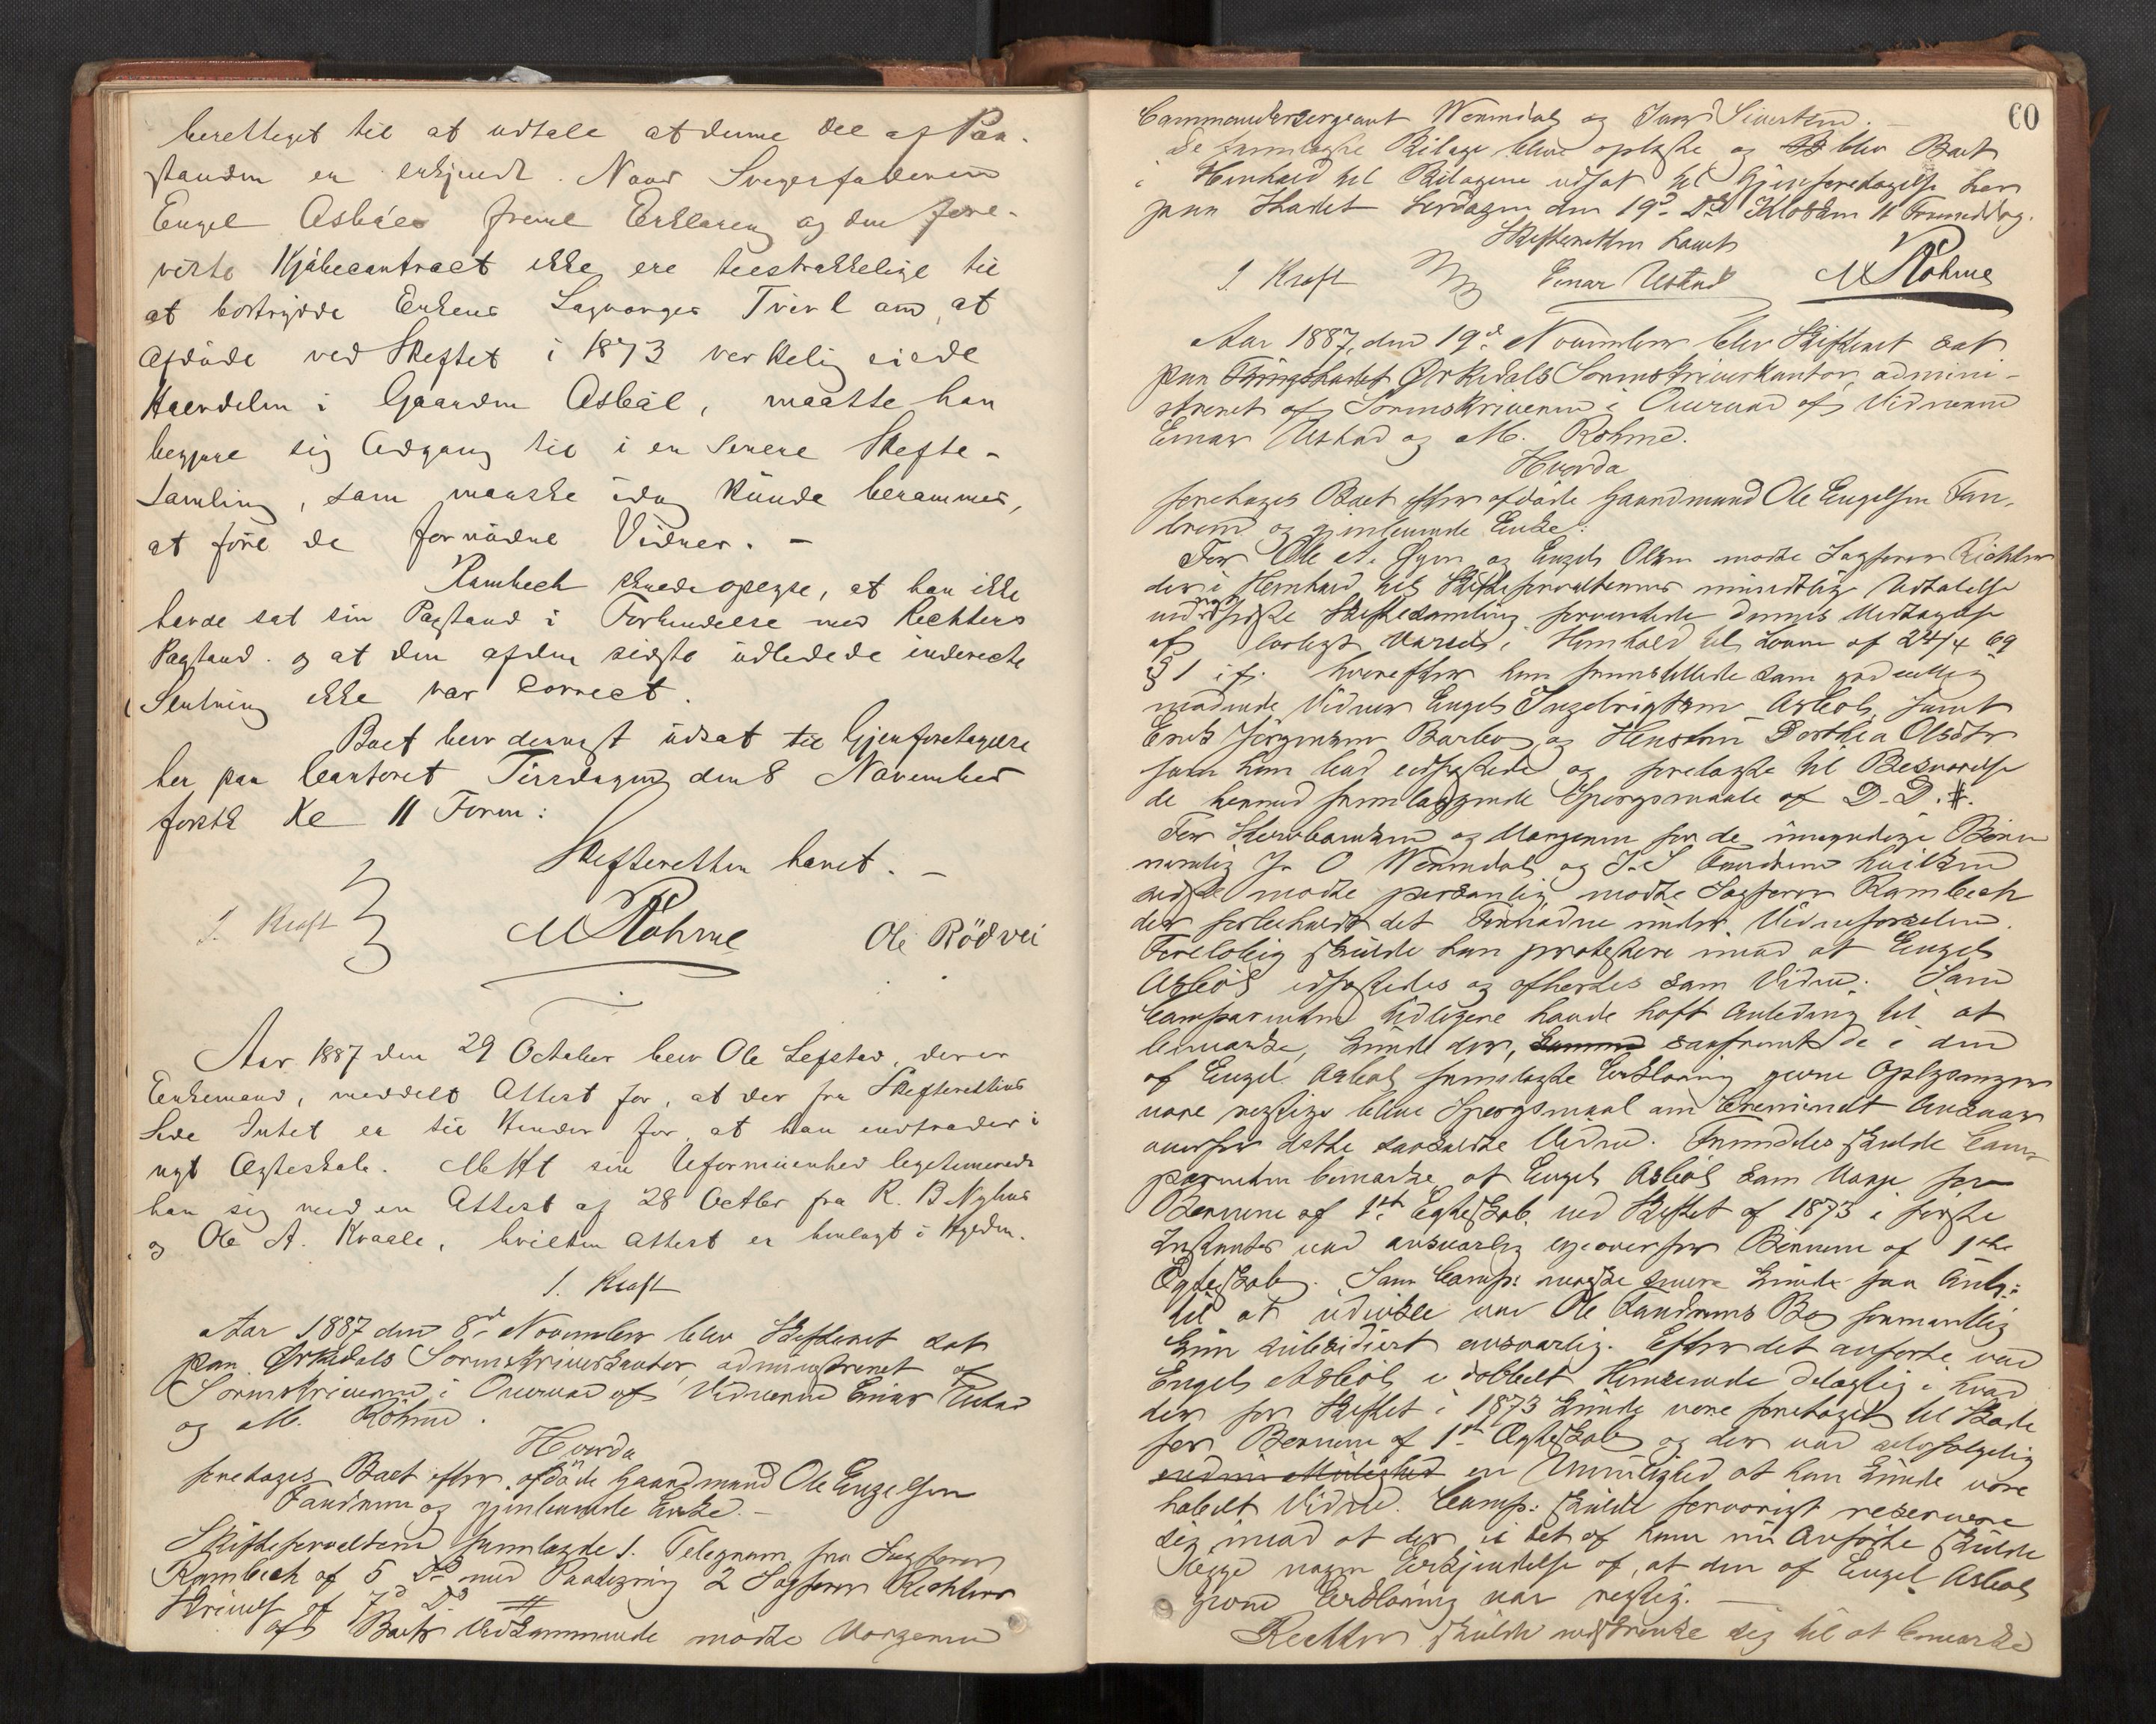 berettiget til at udtale at denne del af Paa-
standen er erkjendt. Naar Svigerfaderen
Engel Asbøls freml Erklæring og den fore-
viste Kjøbecontract ikke ere tilstrækkelige til
at bortrydde Enkens Lagværges Tvivl om, at
Afdøde ved Skiftet i 1873 verkelig eiede
Halvdelen i Gaarden Asbøl, maatte han
begjære sig Adgang til i en senere Skifte-
samling, som maaske idag kunde berammes,
at føre de fornødne Vidner. –
Rambech skulde opgyse, at han ikke
havde sat sin Paastand i Forbindelse med Richters
Paastand og at den af den sidste udledede indirecte
Slutning ikke var correct.
Boet blev dernæst udsat til Gjenforetagelse
her paa Contoret Tirsdagen den 8 November
førstk Kl 11 Form:
Skifteretten hævet. –
J. Kraft M Röhme Ole Rödvei
Aar 1887 den 29 October blev Ole Lefstad, der er
Enkemand, meddelt Attest for, at der fra Skifterettens
Side Intet er til Hinder for at han indtræder i
nyt Ægteskab. Mht sin Uformuenhed legitimerede
han sig med en Attest af 28 Octbr fra R. B. Nyhus
og Ole A. Kvaale, hvilken Attest er henlagt i Hyeden.
J. Kraft
Aar 1887 den 8de November blev Skifteret sat
paa Ørkedals Sorenskriverkontor administreret af
Sorenskriveren i Overvær af Vidnerne Einar Ustad
og M. Röhme.
Hvorda
foretages Boet efter afdøde Gaardmand Ole Engelsen
Fandrem og gjenlevende Enke. –
Skifteforvalteren fremlagde 1. Telegram fra Sagfører
Rambech af 5 Ds med Paategning 2 Sagfører Richters
Skrivelse af 7de Ds #
af Boets Vedkommende mødte Værgerne
60
Commandersergeant Wenndal og Iver Sivertsen. –
De fremlagte Bilage bleve oplæste og blev Boet
i Henhold til Bilagene udsat til Gjenforetagelse her
paa Stedet Lørdagen den 19de Ds Klokken 11 Formiddag.
Skifteretten hævet
J. Kraft Einar Ustad M Röhme
Aar 1887, den 19de November blev Skifteret sat
paa Thingstedet Ørkedals Sorenskriverkontor, admini-
streret af Sorenskriveren i Overvær af Vidnerne
Einar Ustad og M. Rohme.
Hvorda
foretages Boet efter afdøde Gaardmand Ole Engelsen Fan-
drem og gjenlevende Enke:
For Ole A. Øyen og Engels Olsen mødte Sagfører Richter
der i Henhold til Skifteforvalterens mundtlige Udtalelse
ved sidste Skiftesamling forventede dennes Vedtagelse
af lovligt Varsel i Henhold til Loven af 24/4 69
§ 1 jf. hvorefter han fremstillede som godvillig
mødende Vidner Engel Ingebrigtsen Asbøl, samt
Erik Jørgensen Barbo og Hustru Dorthea Olsdtr
som han bad edfæstede og forelagte til Besvarelse
de herved fremlæggende Spørgsmaale af D. D. #.
For Stervboenken og Værgerne for de umyndige Børn
nemlig Jr O Wenndal og J. S Fandrem hvilken
sidste mødte personlig mødte Sagfører Rambech
der forbeholdt det Fornødne under Vidneførselen.
Foreløbig skulde han protestere mod at Engel
Asbøl edfæstedes og afhørtes som Vidne. Som
Comparenten tidligere havde havt Anledning til at
bemærke, kunde der, saafremt de i den
af Engel Asbøl fremlagte Erklæring givne Oplysninger
være rigtige blive Spørgsmaal om Ansvar
overfor dette saakaldte Vidne. Fremdeles skulde Com-
parenten bemærke at Engel Asbøl som Værge for
Børnene af 1ste Egteskab ved Skiftet af 1873 i første
Instants var ansvarlig ligeoverfor Børnene af 1ste
Egteskab. Som Comp: maaske senere kunde faa Anl:
til at udvikle var Ole Fandrems Bo formentlig
kun subsidiært ansvarlig. Efter det anførte var
Engel Asbøl i dobbelt Henseende delagtig i hvad
der før Skiftet i 1873 kunde være foretaget til Skade
for Børnene af 1ste Egteskab og der var selvfølgelig
en Umulighed at han kunde være
habilt Vidne. Comp: skulde forøvrigt reservere
sig imod at der i det af ham nu Anførte skulde
ligge nogen Erkjendelse af, at den af Engel Asbøl
givne Erklæring var rigtig. –
Richter skulde indskrænke sig til at bemærke